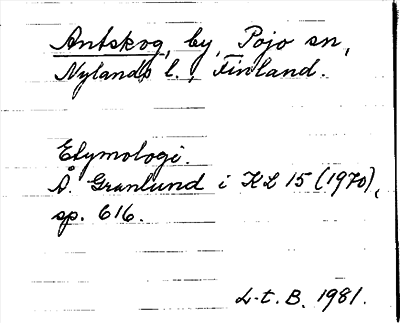 Antskog, by, Pojo sn,
Nylands l., Finland.
Etymologi.
Å. Granlund i KL 15 (1970),
sp. 616.
L-t. B. 1981.